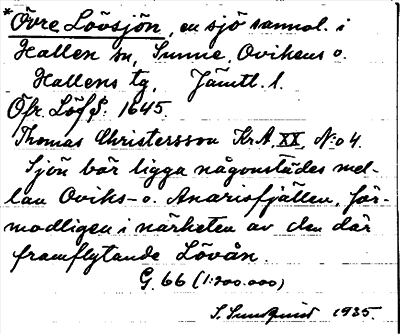 *Övre Lövsjön, en sjö sannol. i
Hallen sn, Sunne, Ovikens o.
Hallens tg, Jämtl. l.
Öfr. Löf S. 1645.
Thomas Christersson Kr.A. XX, No 4.
Sjön bör ligga någonstädes mel-
lan Oviks- o. Anarisfjällen, för-
modligen i närheten av den där
framflytande Lövån.
G. 66 (1:200.000)
S. Sundquist 1935.